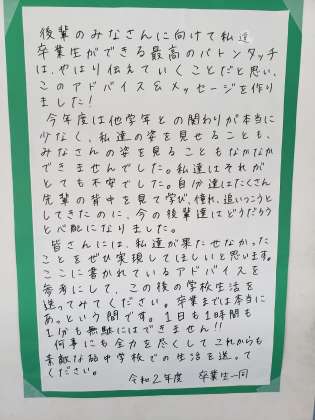 後輩のみなさんに向けて私達
卒業生ができる最高のバトンタッチ
は、やはり伝えていくことだと思い、
このアドバイス&メッセージを作り
ました!
今年度は他学年との関わりが本当に
少なく、私達の姿を見せることも、
みなさんの姿を見ることもなかなか
できませんでした。私達はそれが
とても不安でした。自分達はたくさん
先輩の背中を見て学び、憧れ、追いつこうと
してきたのに、今の後輩達はどうだろう
と心配になりました。
皆さんには、私達が果たせなかった
ことをぜひ実現してほしいと思います。
ここに書かれているアドバイスを
参考にして、この後の学校生活を
送ってみてください。卒業までは本当に
あっという間です。1日も1時間も
1分も無駄にはできません!!
何事にも全力を尽くしてこれからも
素敵な 中学校での生活を送って
ください。
令和2年度 卒業生一同